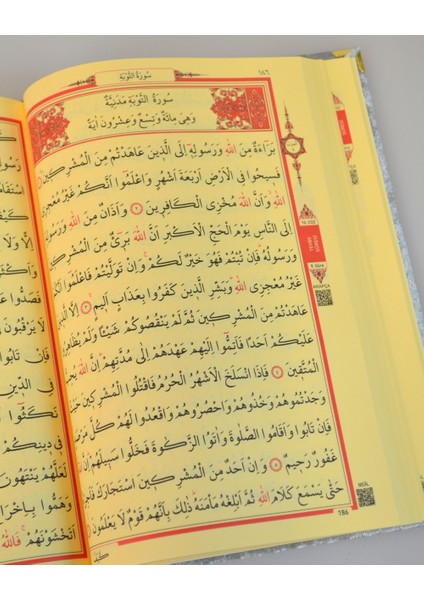 ١٨٦
سُورَةُ التَّوْبَةِ
سُورَةُ التَّوْبَةِ مَدَنِيَّةٌ
وَهِيَ مِائَةٌ وَتِسْعٌ وَعِشْرُونَ اٰيَةً
بَرَٓاءَةٌ مِنَ اللّٰهِ وَرَسُولِه۪ٓ اِلَى الَّذ۪ينَ عَاهَدْتُمْ مِنَ الْمُشْرِك۪ينَ
فَس۪يحُوا فِي الْاَرْضِ اَرْبَعَةَ اَشْهُرٍ وَاعْلَمُٓوا اَنَّكُمْ غَيْرُ مُعْجِزِي
اللّٰهِ وَاَنَّ اللّٰهَ مُخْزِي الْكَافِر۪ينَ ٢ وَاَذَانٌ مِنَ اللّٰهِ وَرَسُولِه۪ٓ
اِلَى النَّاسِ يَوْمَ الْحَجِّ الْاَكْبَرِ اَنَّ اللّٰهَ بَر۪ٓيءٌ مِنَ الْمُشْرِك۪ينَ
وَرَسُولُهُ فَاِنْ تُبْتُمْ فَهُوَ خَيْرٌ لَكُمْ وَاِنْ تَوَلَّيْتُمْ فَاعْلَمُٓوا
غَيْرُ مُعْجِزِي اللّٰهِ وَبَشِّرِ الَّذ۪ينَ كَفَرُوا بِعَذَابٍ اَل۪يمٍ ٣
عَاهَدْتُمْ مِنَ الْمُشْرِك۪ينَ ثُمَّ لَمْ يَنْقُصُوكُمْ شَيْـًٔا وَلَمْ يُظَاهِرُوا
عَلَيْكُمْ اَحَدًا فَاَتِمُّٓوا اِلَيْهِمْ عَهْدَهُمْ اِلٰى مُدَّتِهِمْ اِنَّ اللّٰهَ يُحِبُّ
الْمُتَّق۪ينَ ٤ فَاِذَا انْسَلَخَ الْاَشْهُرُ الْحُرُمُ فَاقْتُلُوا الْمُشْرِك۪ينَ
وَجَدْتُمُوهُمْ وَخُذُوهُمْ وَاحْصُرُوهُمْ وَاقْعُدُوا لَهُمْ كُلَّ مَرْصَدٍ
فَاِنْ تَابُوا وَاَقَامُوا الصَّلٰوةَ وَاٰتَوُا الزَّكٰوةَ فَخَلُّوا سَب۪يلَهُمْ
غَفُورٌ رَح۪يمٌ ٥ وَاِنْ اَحَدٌ مِنَ الْمُشْرِك۪ينَ اسْتَجَارَكَ فَاَجِرْهُ
حَتّٰى يَسْمَعَ كَلَامَ اللّٰهِ ثُمَّ اَبْلِغْهُ مَأْمَنَهُ ذٰلِكَ بِاَنَّهُمْ قَوْمٌ لَا يَعْلَمُونَ
186
MEÂL